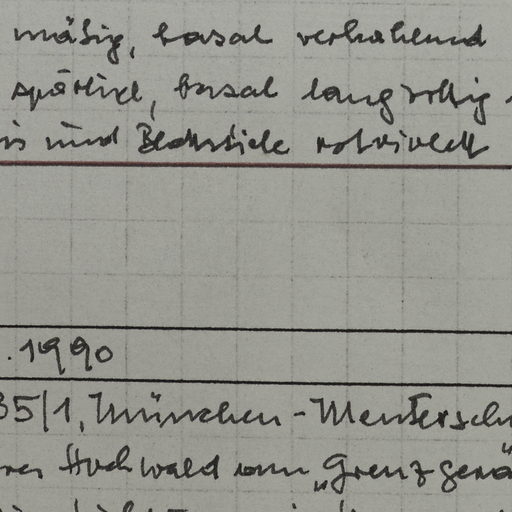 mäßig, basal verkahlend
spärlich, basal langzottig
is und Blattstiele rotviolett
. 1990
35/1, München-Menterschw
rer Hochwald vom „Grenzgerä